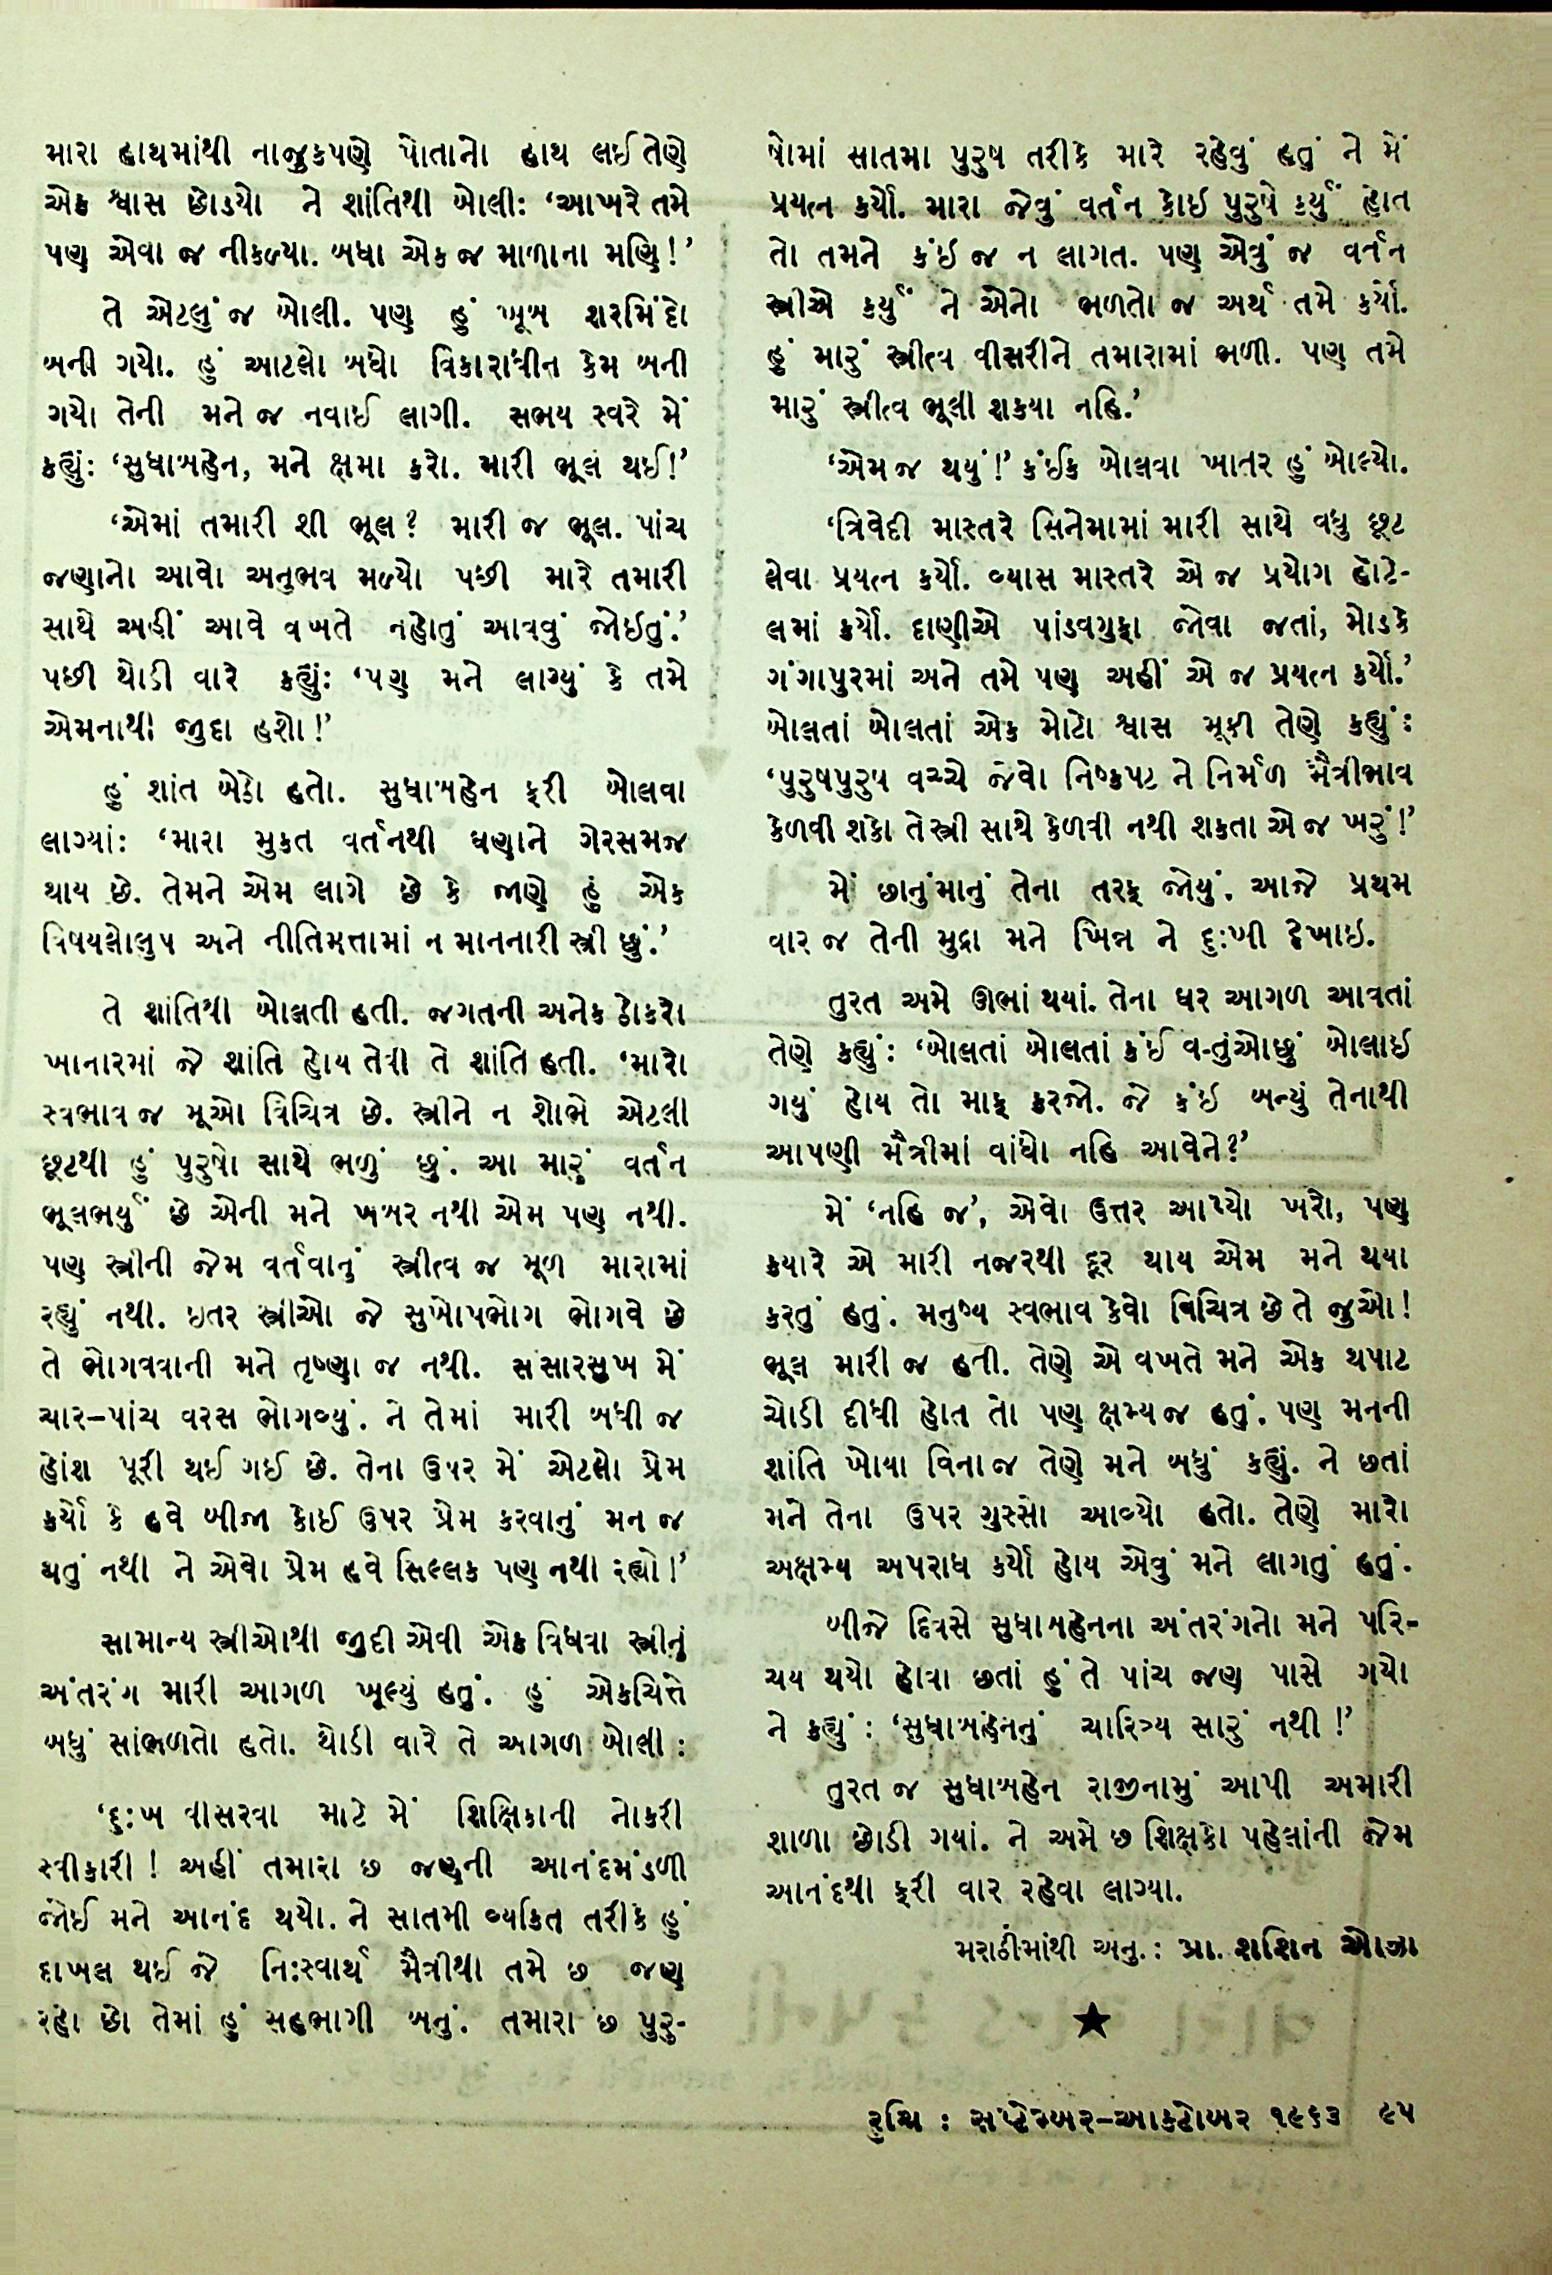 મારા હાથમાંથી નાજુકપણે પોતાનો હાથ લઈ તેણે
એક શ્વાસ છોડયો ને શાંતિથી બોલી: ‘આખરે તમે
પણ એવા જ નીકળ્યા. બધા એક જ માળાના મણિ!’
તે એટલું જ બોલી. પણ હું ખૂબ શરમિંદો
બની ગયો. હું આટલો બધો વિકારાધીન કેમ બની
ગયો તેની મને જ નવાઈ લાગી. સભય સ્વરે મેં
કહ્યું: ‘સુધાબહેન, મને ક્ષમા કરો. મારી ભૂલ થઈ!’
‘એમાં તમારી શી ભૂલ? મારી જ ભૂલ. પાંચ
જણાનો આવો અનુભવ મળ્યો પછી મારે તમારી
સાથે અહીં આવે વખતે નહોતું આવવું જોઈતું.’
પછી થોડી વારે કહ્યું: ‘પણ મને લાગ્યું કે તમે
એમનાથી જુદા હશો!’
હું શાંત બેઠો હતો. સુધાબહેન ફરી બોલવા
લાગ્યાં: ‘મારા મુકત વર્તનથી ઘણાને ગેરસમજ
થાય છે. તેમને એમ લાગે છે કે જાણે હું એક
વિષયલોલુપ અને નીતિમત્તામાં ન માનનારી સ્ત્રી છું.’
તે શાંતિથી બોલતી હતી. જગતની અનેક ઠોકરો
ખાનારમાં જે શાંતિ હોય તેવી તે શાંતિ હતી. ‘મારો
સ્વભાવ જ મૂઓ વિચિત્ર છે. સ્ત્રીને ન શોભે એટલી
છૂટથી હું પુરુષો સાથે ભળું છું. આ મારું વર્તન
ભૂલભર્યું છે એની મને ખબર નથી એમ પણ નથી.
પણ સ્ત્રીની જેમ વર્તવાનું સ્ત્રીત્વ જ મૂળ મારામાં
રહ્યું નથી. ઇતર સ્ત્રીઓ જે સુખોપભોગ ભોગવે છે
તે ભોગવવાની મને તૃષ્ણા જ નથી. સંસારસુખ મેં
ચાર–પાંચ વરસ ભોગવ્યું. ને તેમાં મારી બધી જ
હોંશ પૂરી થઈ ગઈ છે. તેના ઉપર મેં એટલો પ્રેમ
કર્યો કે હવે બીજા કોઈ ઉપર પ્રેમ કરવાનું મન જ
થતું નથી ને એવો પ્રેમ હવે સિલ્લક પણ નથી રહ્યો!’
સામાન્ય સ્ત્રીઓથી જુદી એવી એક વિધવા સ્ત્રીનું
અંતરંગ મારી આગળ ખૂલ્યું હતું. હું એકચિત્તે
બધું સાંભળતો હતો. થોડી વારે તે આગળ બોલી :
‘દુ:ખ વીસરવા માટે મેં શિક્ષિકાની નોકરી
સ્વીકારી ! અહીં તમારા છ જણની આનંદમંડળી
જોઈ મને આનંદ થયો. ને સાતમી વ્યકિત તરીકે હું
દાખલ થઈ જે નિ:સ્વાર્થ મૈત્રીથી તમે છ જણ
રહો છો તેમાં હું સહભાગી બનું. તમારા છ પુરુ-
ષોમાં સાતમા પુરુષ તરીકે મારે રહેવું હતું ને મેં
પ્રયત્ન કર્યો. મારા જેવું વર્તન કોઇ પુરુષે કર્યું હોત
તો તમને કંઇ જ ન લાગત. પણ એવું જ વર્તન
સ્ત્રીએ કર્યું ને એનો ભળતો જ અર્થ તમે કર્યો.
હું મારું સ્ત્રીત્વ વીસરીને તમારામાં ભળી. પણ તમે
મારું સ્ત્રીત્વ ભૂલી શકયા નહિ.’
‘એમ જ થયું!’ કંઈક બોલવા ખાતર હું બોલ્યો.
‘ત્રિવેદી માસ્તરે સિનેમામાં મારી સાથે વધુ છૂટ
લેવા પ્રયત્ન કર્યો. વ્યાસ માસ્તરે એ જ પ્રયોગ હોટે-
લમાં કર્યો. દાણીએ પાંડવગુફા જોવા જતાં, મોડકે
ગંગાપુરમાં અને તમે પણ અહીં એ જ પ્રયત્ન કર્યો.’
બોલતાં બોલતાં એક મોટો શ્વાસ મૂકી તેણે કહ્યું:
‘પુરુષપુરુષ વચ્ચે જેવો નિષ્કપટ ને નિર્મળ મૈત્રીભાવ
કેળવી શકો તે સ્ત્રી સાથે કેળવી નથી શકતા એ જ ખરું!’
મેં છાનુંમાનું તેના તરફ જોયું. આજે પ્રથમ
વાર જ તેની મુદ્રા મને ખિન્ન ને દુ:ખી દેખાઇ.
તુરત અમે ઊભાં થયાં. તેના ઘર આગળ આવતાં
તેણે કહ્યું: ‘બોલતાં બોલતાં કંઈ વત્તુંઓછું બોલાઇ
ગયું હોય તો માફ કરજો. જે કંઇ બન્યું તેનાથી
આપણી મૈત્રીમાં વાંધો નહિ આવેને?’
મેં ‘નહિ જ’, એવો ઉત્તર આપ્યો ખરો, પણ
કયારે એ મારી નજરથી દૂર થાય એમ મને થયા
કરતું હતું. મનુષ્ય સ્વભાવ કેવો વિચિત્ર છે તે જુઓ!
ભૂલ મારી જ હતી. તેણે એ વખતે મને એક થપાટ
ચોડી દીધી હોત તો પણ ક્ષમ્ય જ હતું. પણ મનની
શાંતિ ખોયા વિના જ તેણે મને બધું કહ્યું. ને છતાં
મને તેના ઉપર ગુસ્સો આવ્યો હતો. તેણે મારો
અક્ષમ્ય અપરાધ કર્યો હોય એવું મને લાગતું હતું.
બીજે દિવસે સુધાબહેનના અંતરંગનો મને પરિ-
ચય થયો હોવા છતાં હું તે પાંચ જણ પાસે ગયો
ને કહ્યું : ‘સુધાબહેનનું ચારિત્ર્ય સારું નથી !’
તુરત જ સુધાબહેન રાજીનામું આપી અમારી
શાળા છોડી ગયાં. ને અમે છ શિક્ષકો પહેલાંની જેમ
આનંદથી ફરી વાર રહેવા લાગ્યા.
મરાઠીમાંથી અનુ.: પ્રા. શશિન ઓઝા
રુચિ : સપ્ટેમ્બર–આકટોબર ૧૯૬૩ ૯૫